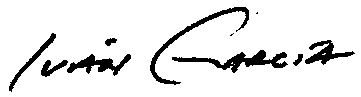 Iván García